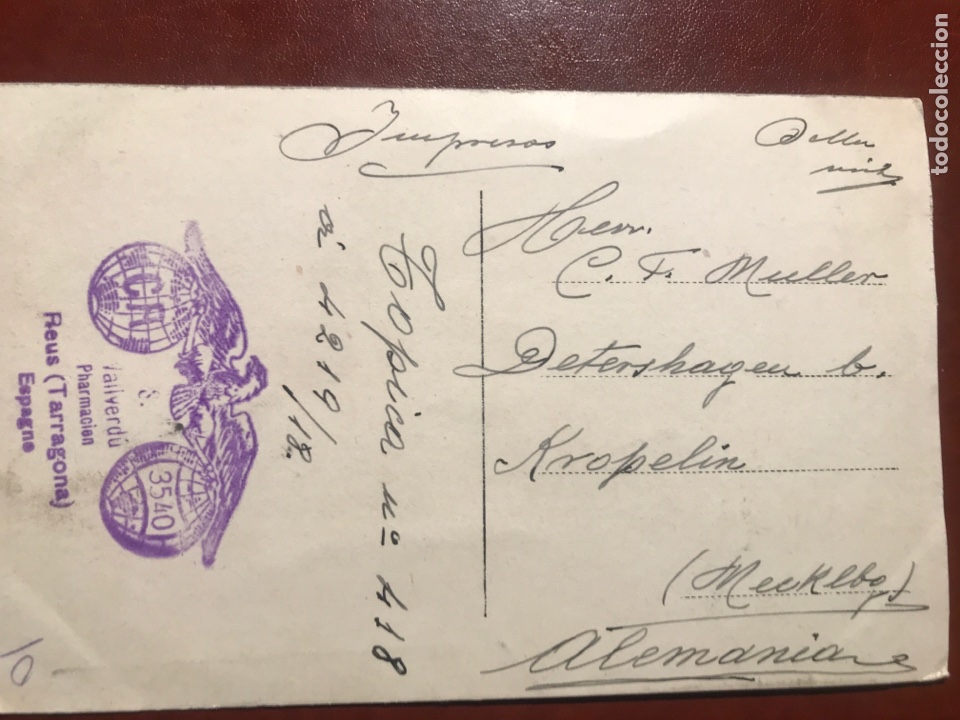 Impresos
Herr.
C. F. Muller
Detershagen b.
Kropelin
(Mecklbg)
Alemania
Tropica nº 418
a 4219/18.
C.K.
3540
&
Vallverdú
Pharmacien
Reus (Tarragona)
Espagne
10
todocoleccion